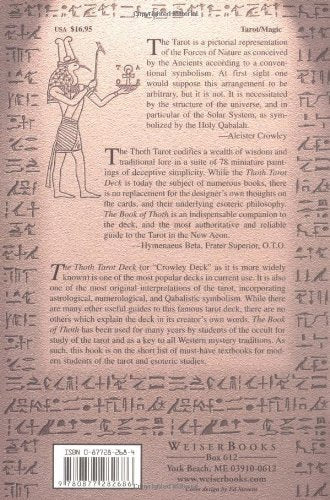 USA $16.95
Tarot/Magic
The Tarot is a pictorial representation
of the Forces of Nature as conceived
by the Ancients according to a conven-
tional symbolism. At first sight one
would suppose this arrangement to be
arbitrary, but it is not. It is necessitated
by the structure of the universe, and in
particular of the Solar System, as sym-
bolized by the Holy Qabalah.
—Aleister Crowley
The Thoth Tarot codifies a wealth of wisdom and
traditional lore in a suite of 78 miniature paint-
ings of deceptive simplicity. While the Thoth Tarot
Deck is today the subject of numerous books, there
is no replacement for the designer's own thoughts on
the cards, and their underlying esoteric philosophy.
The Book of Thoth is an indispensable companion to
the deck, and the most authoritative and reliable
guide to the Tarot in the New Aeon.
—Hymenaeus Beta, Frater Superior, O.T.O.
The Thoth Tarot Deck (or "Crowley Deck" as it is more widely
known) is one of the most popular decks in current use. It is also
one of the most original interpretations of the tarot, incorporating
astrological, numerological, and Qabalistic symbolism. While there
are many other useful guides to this famous tarot deck, there are no
others which explain the deck in its creator's own words. The Book
of Thoth has been used for many years by students of the occult for
study of the tarot and as a key to all Western mystery traditions. As
such, this book is on the short list of must-have textbooks for mod-
ern students of the tarot and esoteric studies.
ISBN 0-87728-268-4
9 780877 282686
WEISERBOOKS
Box 612
York Beach, ME 03910-0612
www.weiserbooks.com